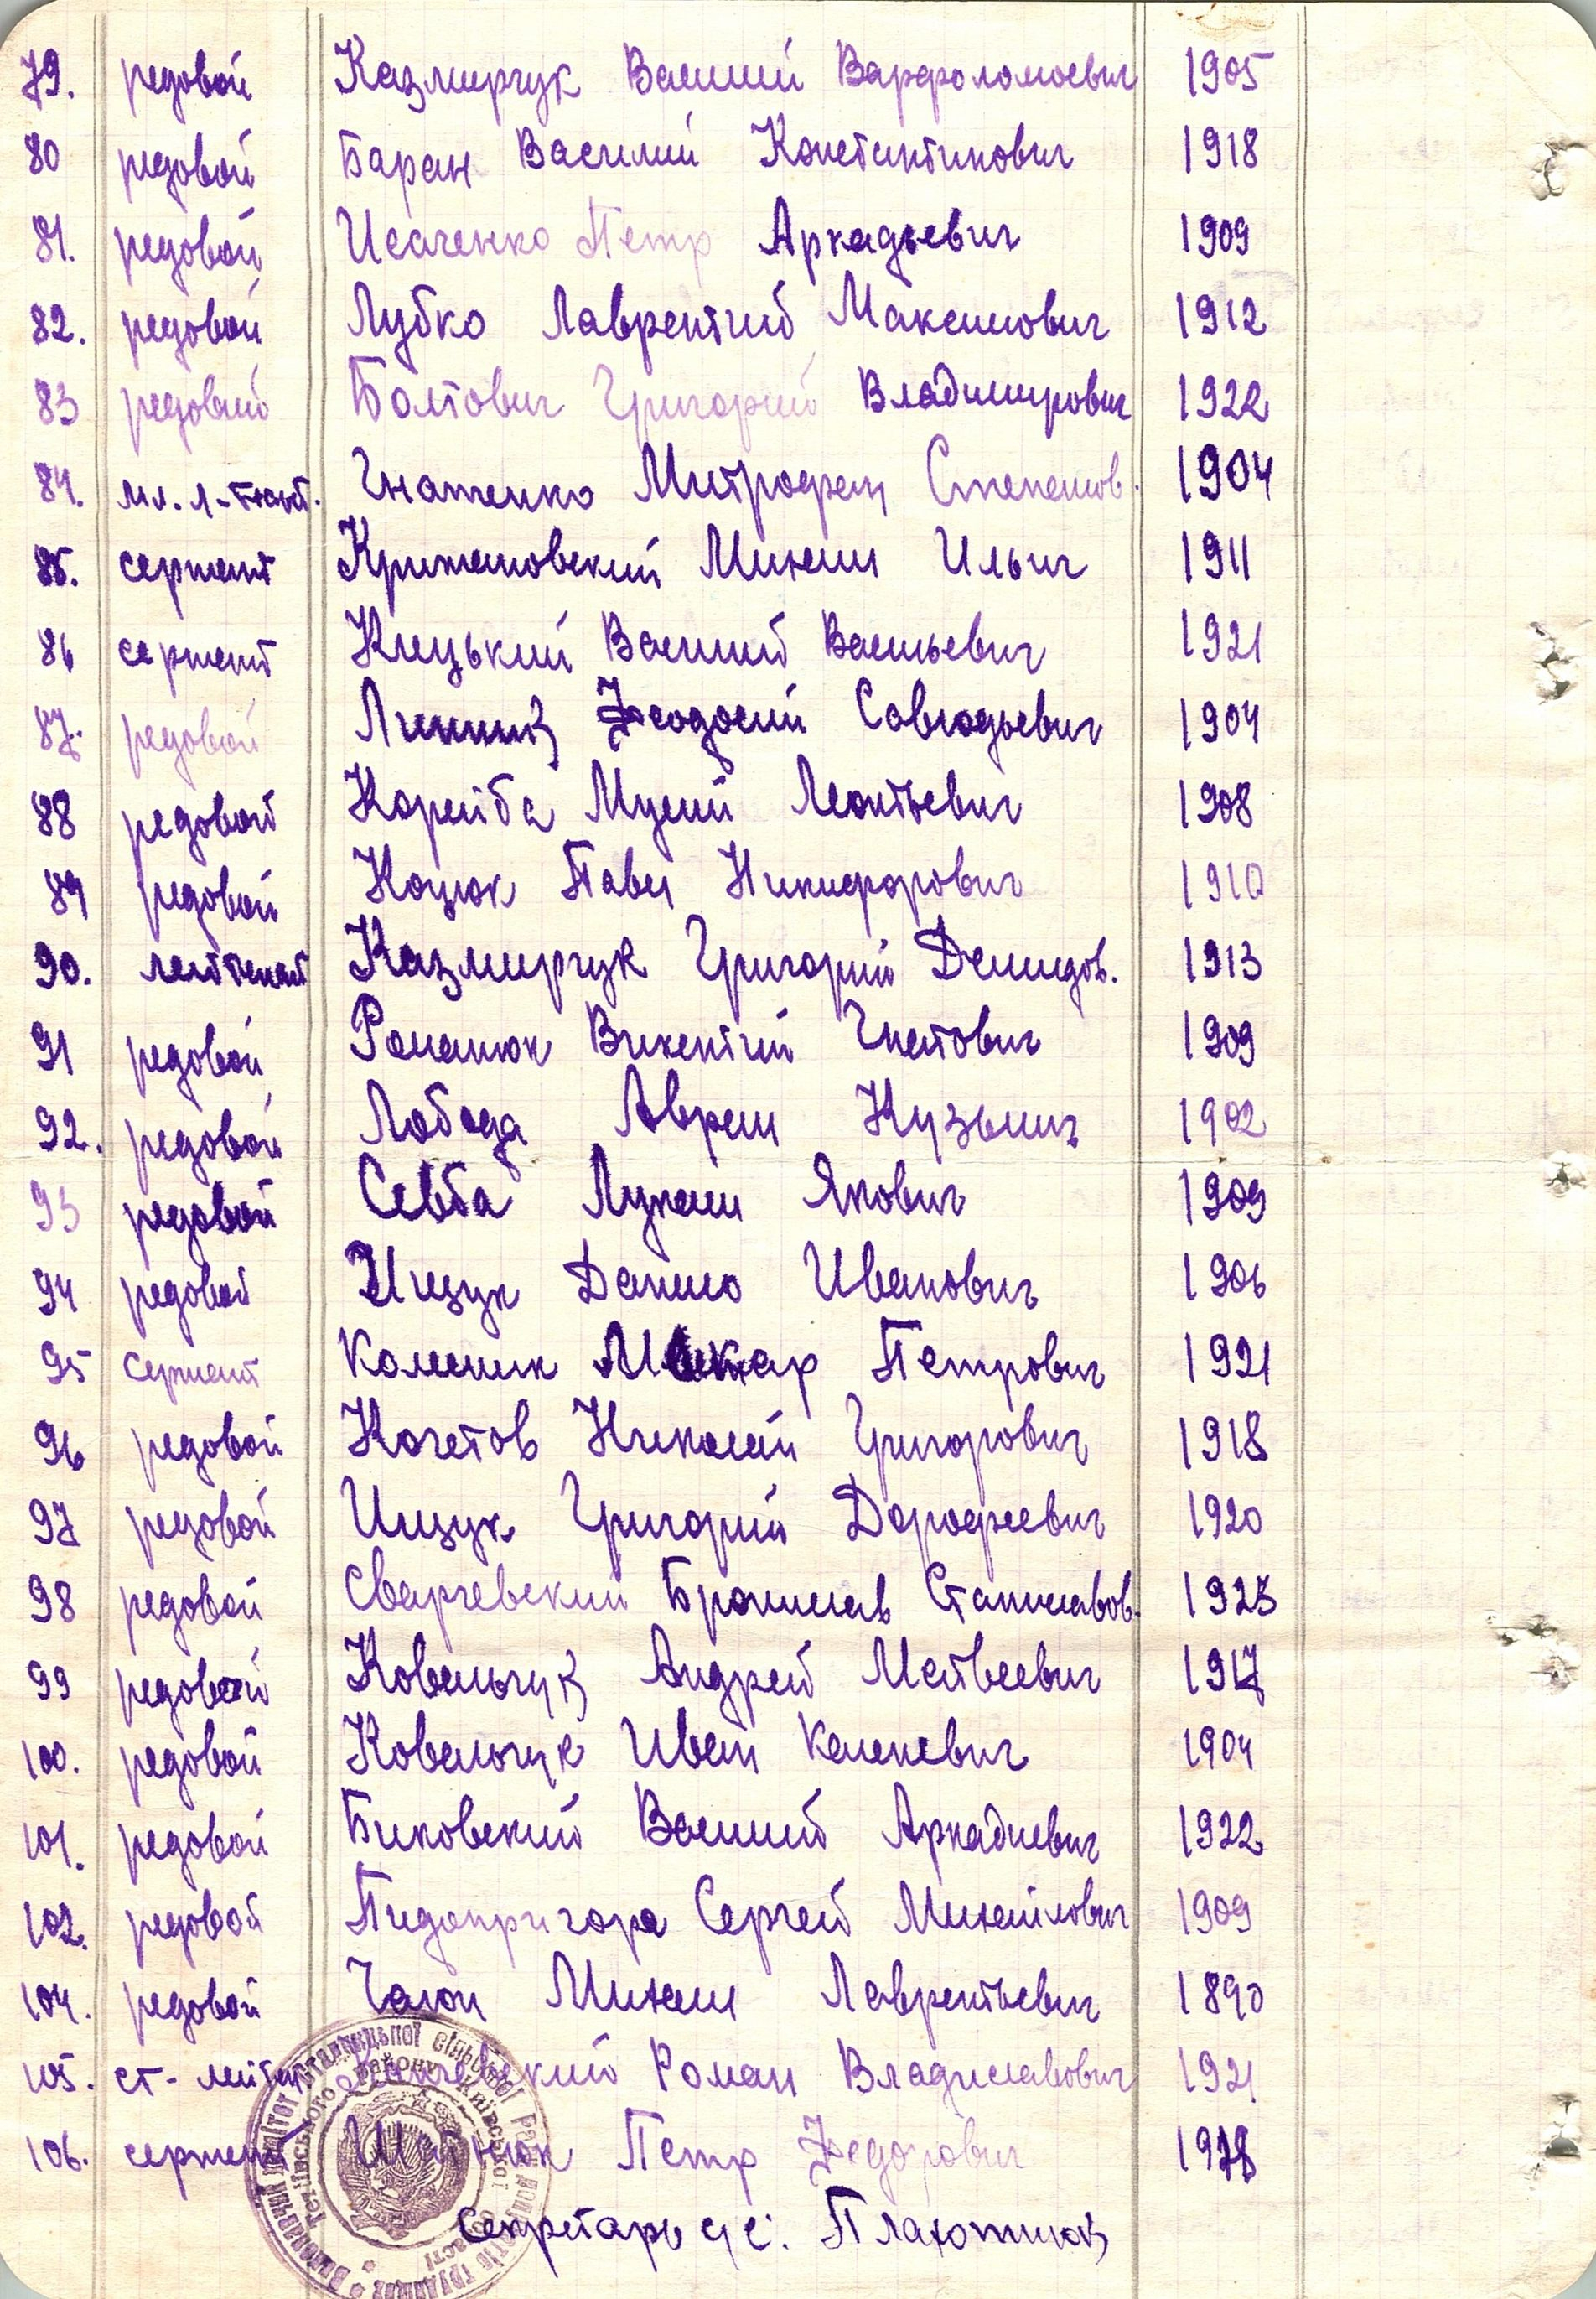 79. редовой Казмирчук Василий Варфоломеевич 1905
80 редовой Баран Василий Константинович 1918
81. редовой Исаченко Петр Аркадьевич 1909
82. редовой Лубко Лаврентий Максимович 1912
83 редовий Болтович Григорий Владимирович 1922
84. мл. л-тенант. Гнатенко Митрофан Степанов. 1904
85. сержант Крижановский Михаил Ильич 1911
86 сержант Кицький Василий Васильевич 1921
87. редовой Линник Феодосий Савгодьевич 1904
88 редовой Корейба Мусий Леонтьевич 1908
89 редовой Коцюк Павел Никифорович 1910
90. лейтенант Казмирчук Григорий Демидов. 1913
91 редовой Романюк Викентий Гнатович 1909
92. редовой Лобода Аврам Кузьмич 1902
93 редовой Севба Лукаш Якович 1909
94 редовой Ищук Данило Иванович 1906
95 сержант Колесник Макар Петрович 1921
96 редовой Кочетов Николай Григорович 1918
97 редовой Ищук Григорий Дорофеевич 1920
98 редовой Сварчевский Бронислав Станиславов. 1923
99 редовой Ковальчук Андрей Матвеевич 1917
100. редовой Ковальчук Иван Каленевич 1904
101. редовой Биковский Василий Аркадиевич 1922
102. редовой Пидопригора Сергей Михайлович 1909
104. редовой Галон Михаил Лаврентьевич 1890
105. ст-лейтен Роман Владиславович 1921
106. сержант Петр Федорович
Секретарь с/с: Плахотнюк